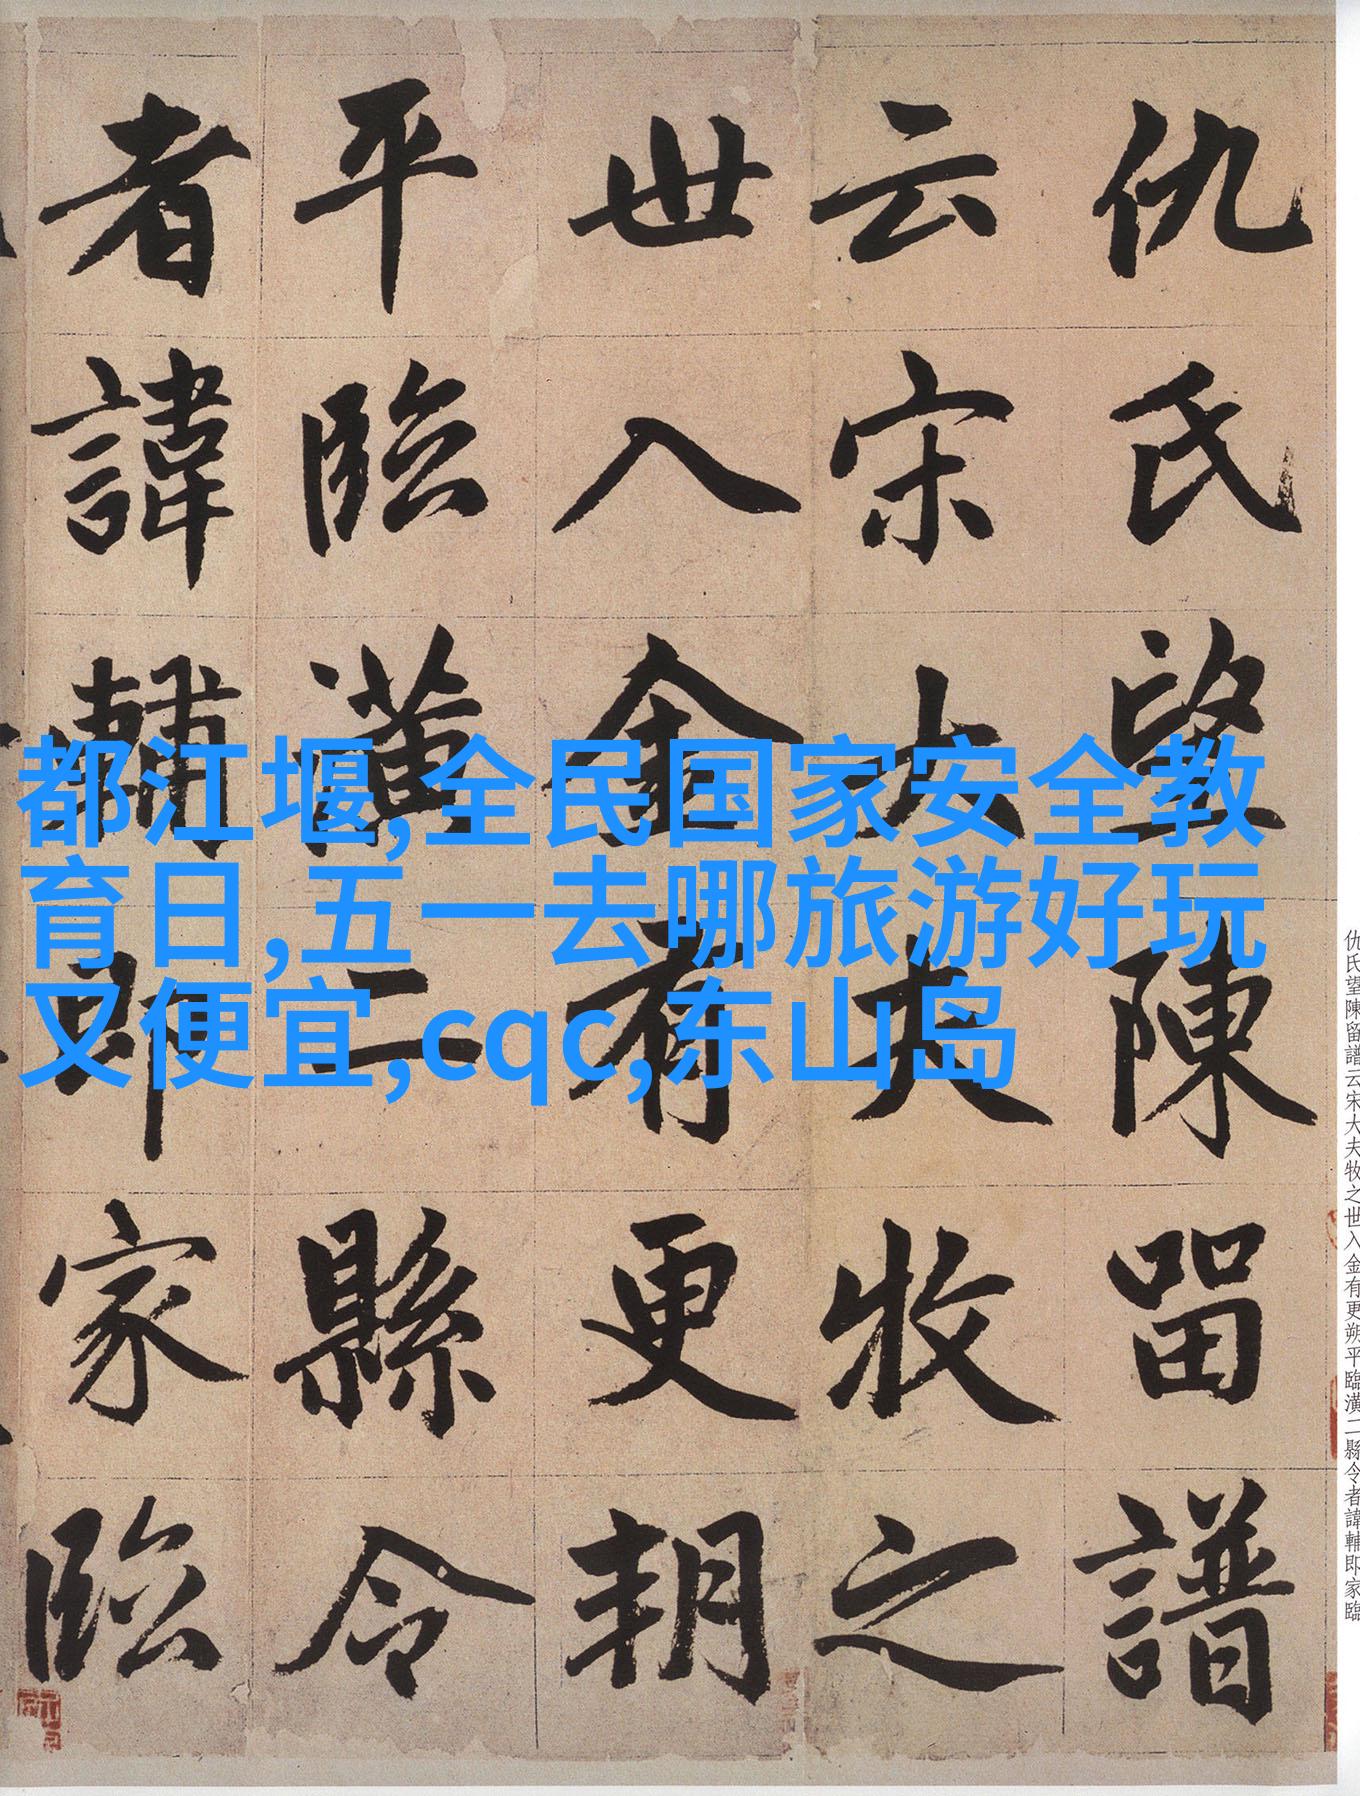 仇氏望陳留譜
云宋大夫牧之
世入金有更朔
平臨潢二縣令
者諱輔即家臨
都江堰,全民国家安全教
育日,五一去哪旅游好玩
又便宜,cqc,东山岛
仇氏望陳留譜云宋大夫牧之世入金有更朔平臨潢二縣令者諱輔即家臨